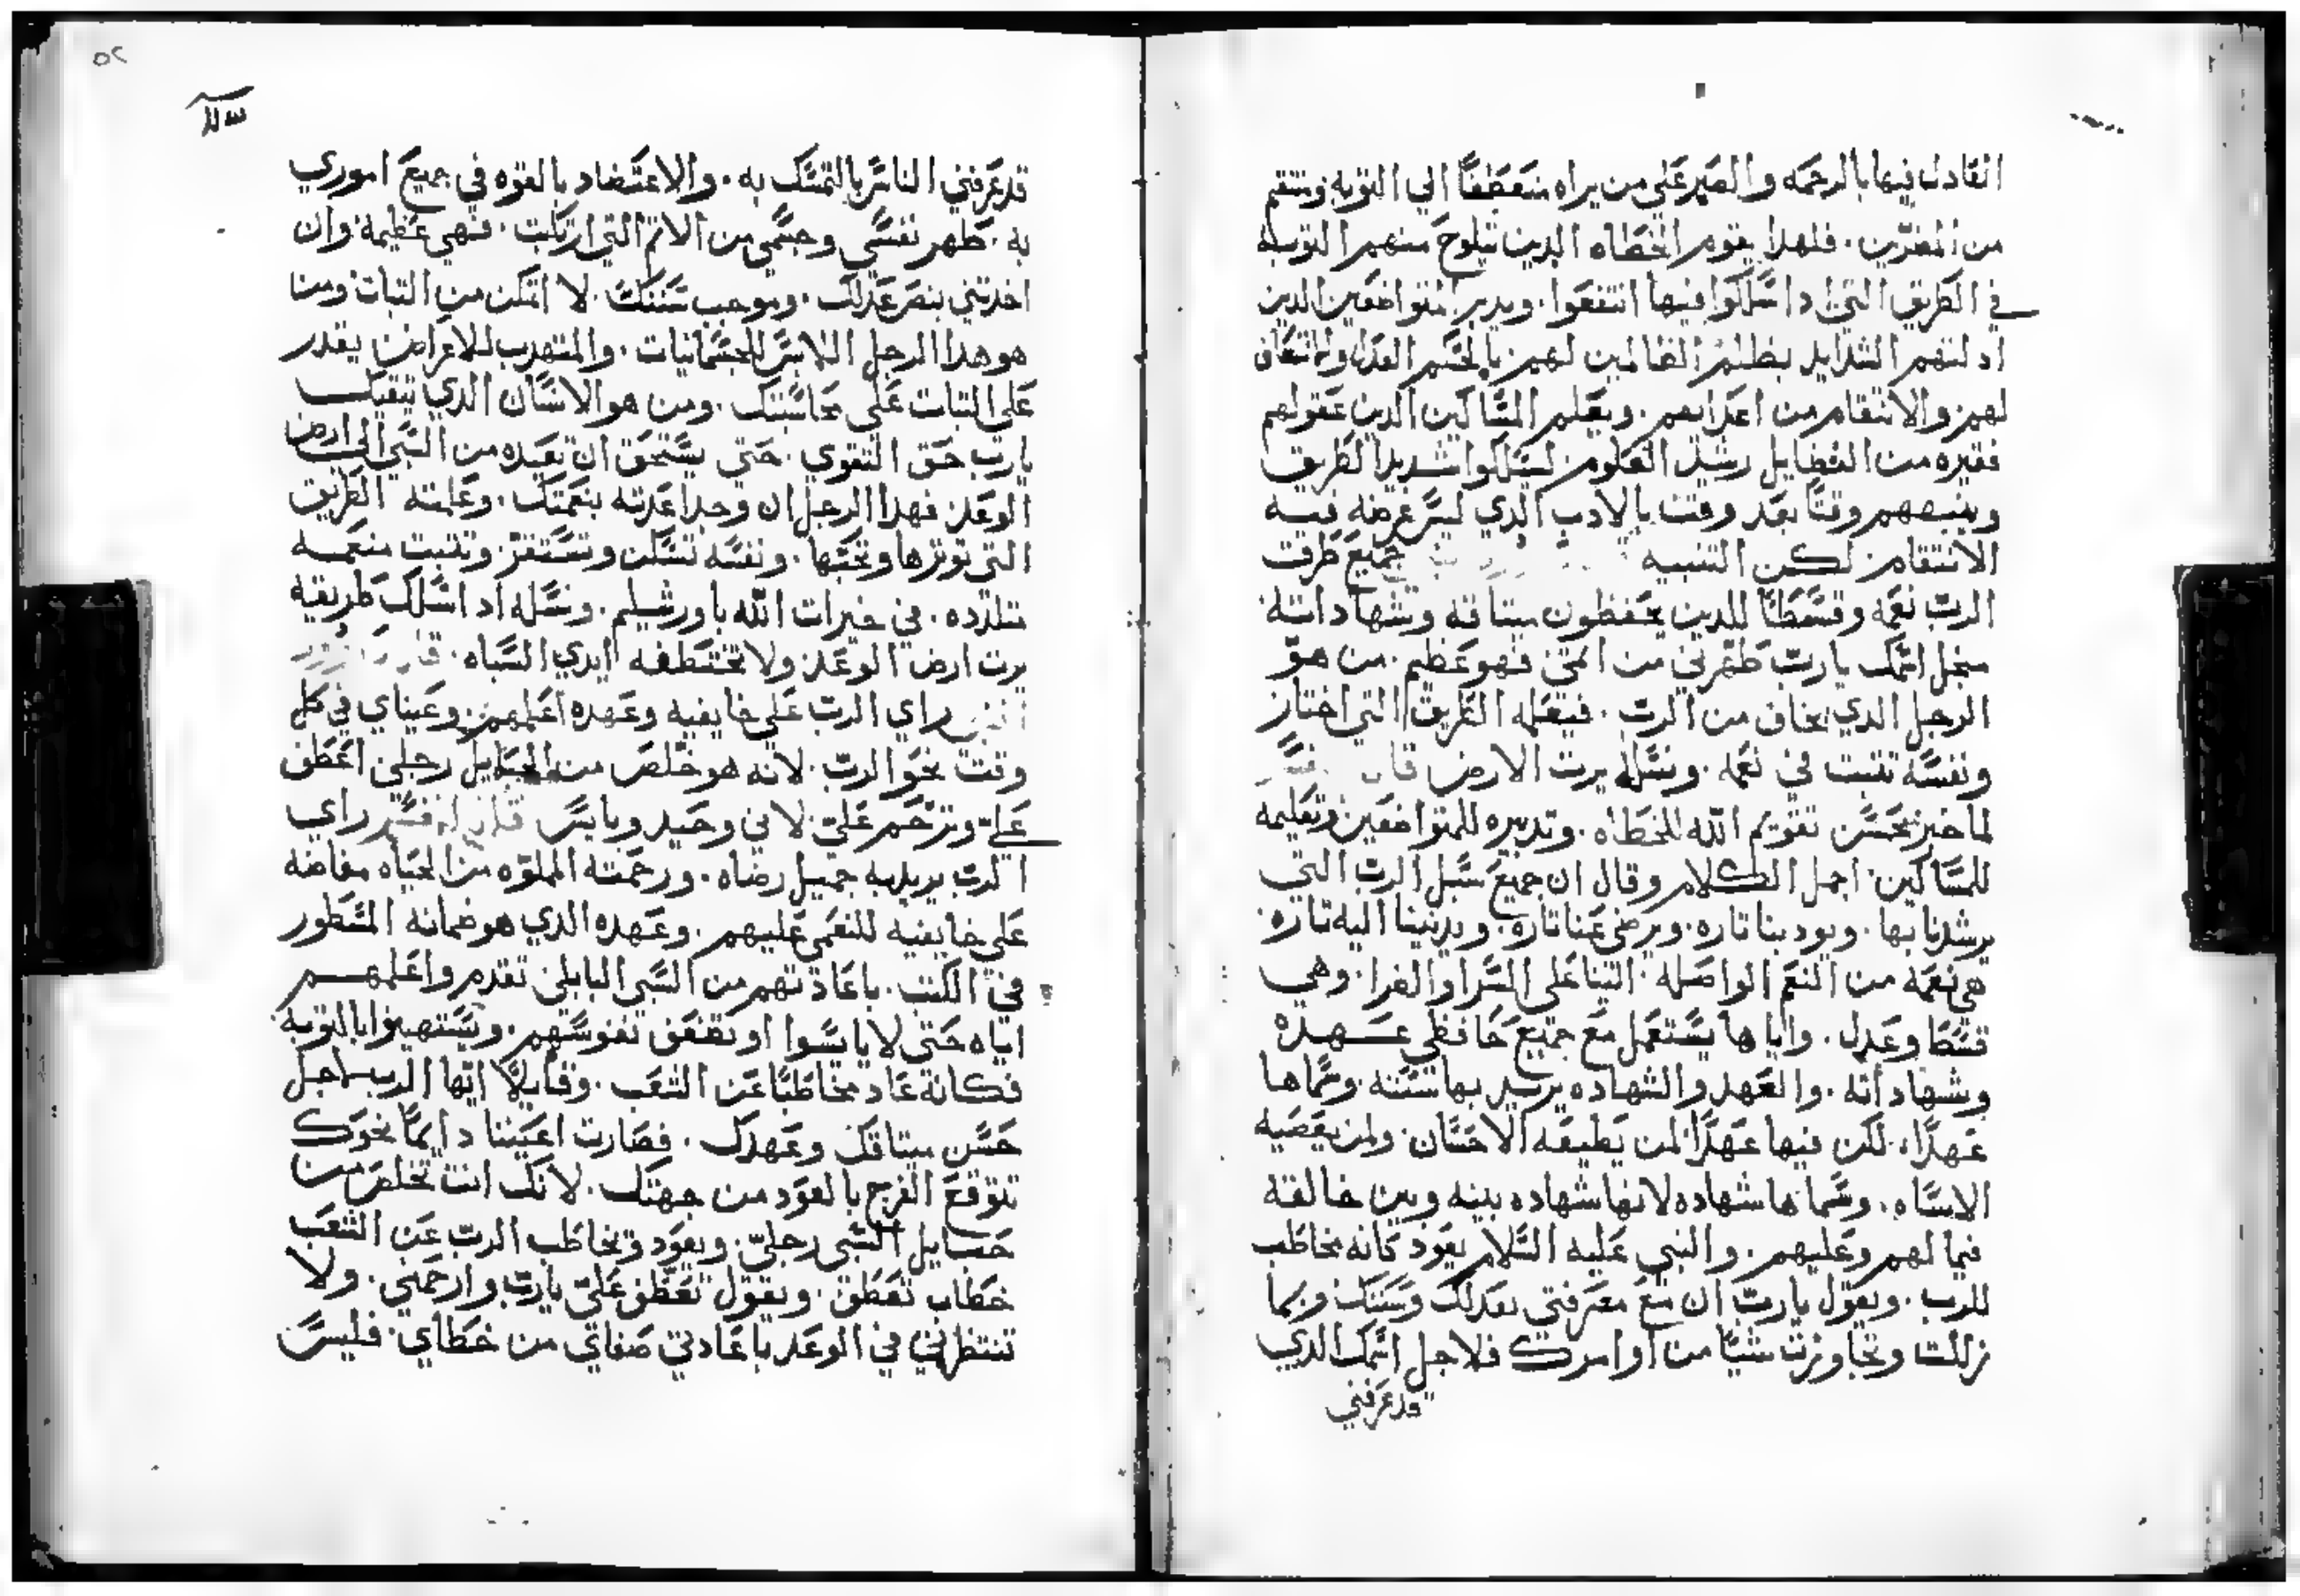 العادل فيها بالرحمه والصبر علي من يراه منعطفًا الي التوبه وينتقم
من المصرّين. فلهدا يقوم الخطاه الدين تلوح منهم التوبه
في الطريق التي ادا سلكوا فيها انتفعوا. ويدبر المتواضعين الدين
ادلتهم الشدايد بظلم الظالمين لهم. بالحكم العدل والانتصاف
لهم والانتقام من اعدايهم. ويعلم المساكين الدين عقولهم
فقيره من الفضايل رشيد العلوم ليسلكوا شديد الطريق
وينبههم وقتًا بعد وقت بالادب الدي ليس غرضه فيه
الانتقام لكن التنبيه جميع طرق
الربّ نعمه وقسطًا للدين يحفظون ميتاقه وشهاداته
منجل اسمك يا ربّ طهرني من اتمي فهو عظيم. من هوّ
الرجل الدي يخاف من الربّ. فيعلمه الطريق التي اختار
ونفسه تتبت في نعمه. ونسله يرت الارض قال
لما خبر بحسن تقويم الله للخطاه. وتدبيره للمتواضعين وتعليمه
للمساكين. اجمل الكلام وقال ان جميع سبل الربّ التي
يرشدنا بها. ويودبنا تاره. ويرضي عنا تارة. ويدنينا اليه تاره
هي نعمه من النعم الواصله الينا علي السرا والضرا. وهي
قسط وعدل. واياها يستعمل مع جميع حافظي عهده
وشهاداته. والعهد والشهاده يريد بها سننه. وسماها
عهدًا. لكن فيها عهدًا لمن يطيعه الاحسان. ولمن يعصيه
الاساه. وسماها شهاده لانها شهاده بينه وبين خالقه
فيما لهم وعليهم. والنبي عليه السلام يعود كانه يخاطب
للرب. ويقول يا ربّ ان مع معرفتي بعدلك وسننك وربما
زللت وتجاوزت شيًا من اوامرك فلاجل اسمك الدي
قد عرفني
قد عرفني الناس بالتمسك به. والاعتضاد بالقوه في جميع اموري
به. طهر نفسي وجسمي من الاتم التي ارتكبت. فهي عظيمة. وان
اخدتني بنص عدلك. وموجب سننك. لا اتمكن من التبات ومن
هو هدا الرجل اللابس للجسمانيات. والمتهدب للاعراض يقدر
علي التبات علي محاسبتك. ومن هو الانسان الدي يتقيك
يا رب حق التقوي. حتي يستحق ان تعيده من السبي الي ارض
الوعد. فهدا الرجل ان وجد اعدته بنعمتك. وعلمته الطريق
التي توترها وتحبها. ونفسه تسكن وتستقر. وتتبت منعمه
متلدده. في خيرات الله باورشليم. ونسله اد اسلك طريقه
يرت ارض الوعد. ولا تختطفه ايدي السباه.
راي الربّ علي خايفيه وعهده اعلمهم. وعيناي في كل
وقت نحو الربّ. لانه هو خلص من الحبايل رجلي اعطف
عليّ وترحم عليّ. لاني وحيد وبايس قال المفسر راي
الربّ يريد به جميل رضاه. ورحمته المملوّه من الحياه مفاضه
علي خايفيه للنعمي عليهم. وعهده الدي هو ضمانه المسطور
في الكتب. باعادتهم من السبي البابلي تقدم واعلمهم
اياه حتي لا ياسوا او تضعف نفوسهم. ويستهينوا بالتوبه
فكانه عاد مخاطبًا عن الشعب. وقايلًا ايها الرب لاجل
حسن ميتاقك وعهدك. فصارت اعيننا دايمًا نحوك
تتوقع الفرج بالعود من جهتك. لانك انت تخلص من
حبايل السبي رجليّ. ويعود ويخاطب الربّ عن الشعب
خطاب تعطف. ويقول تعطف عليّ يا ربّ وارحمني. ولا
تنتظر بي في الوعد باعادتي صفاي من خطاي. فليس